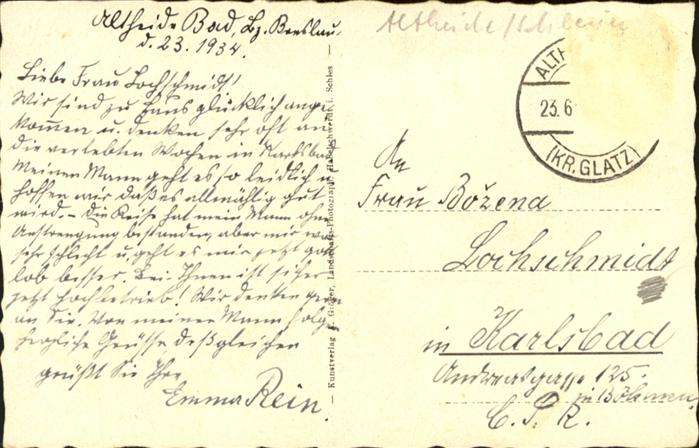 Altheide Bad, Bz. Breslau.
d. 23. 1934.
Liebe Frau Lochschmidt!
Wir sind zu Haus glücklich ange-
kommen u. denken sehr oft an
die verlebten Wochen in Karlsbad
Meinen Mann geht es so leidlich u.
hoffen wir daß es allmählig gut
wird. – Die Reise hat mein Mann ohne
Anstrengung bestanden, aber mir war
sehr schlecht u. geht es mir jetzt gott
lob besser. Bei Ihnen ist sicher
jetzt Hochbetrieb! Wir denken gern
an Sie. Von meinen Mann folgen
herzliche Grüße desgleichen
grüßt Sie Ihre
Emma Rein.
— Kunstverlag Landschafts-Photograph, Habelschwerdt i. Schles —
Altheide/Schlesien
ALTH
23.6
(KR.GLATZ)
An
Frau Božena
Lochschmidt
in Karlsbad
Andreasgasse 125.
in Böhmen.
C. S. R.